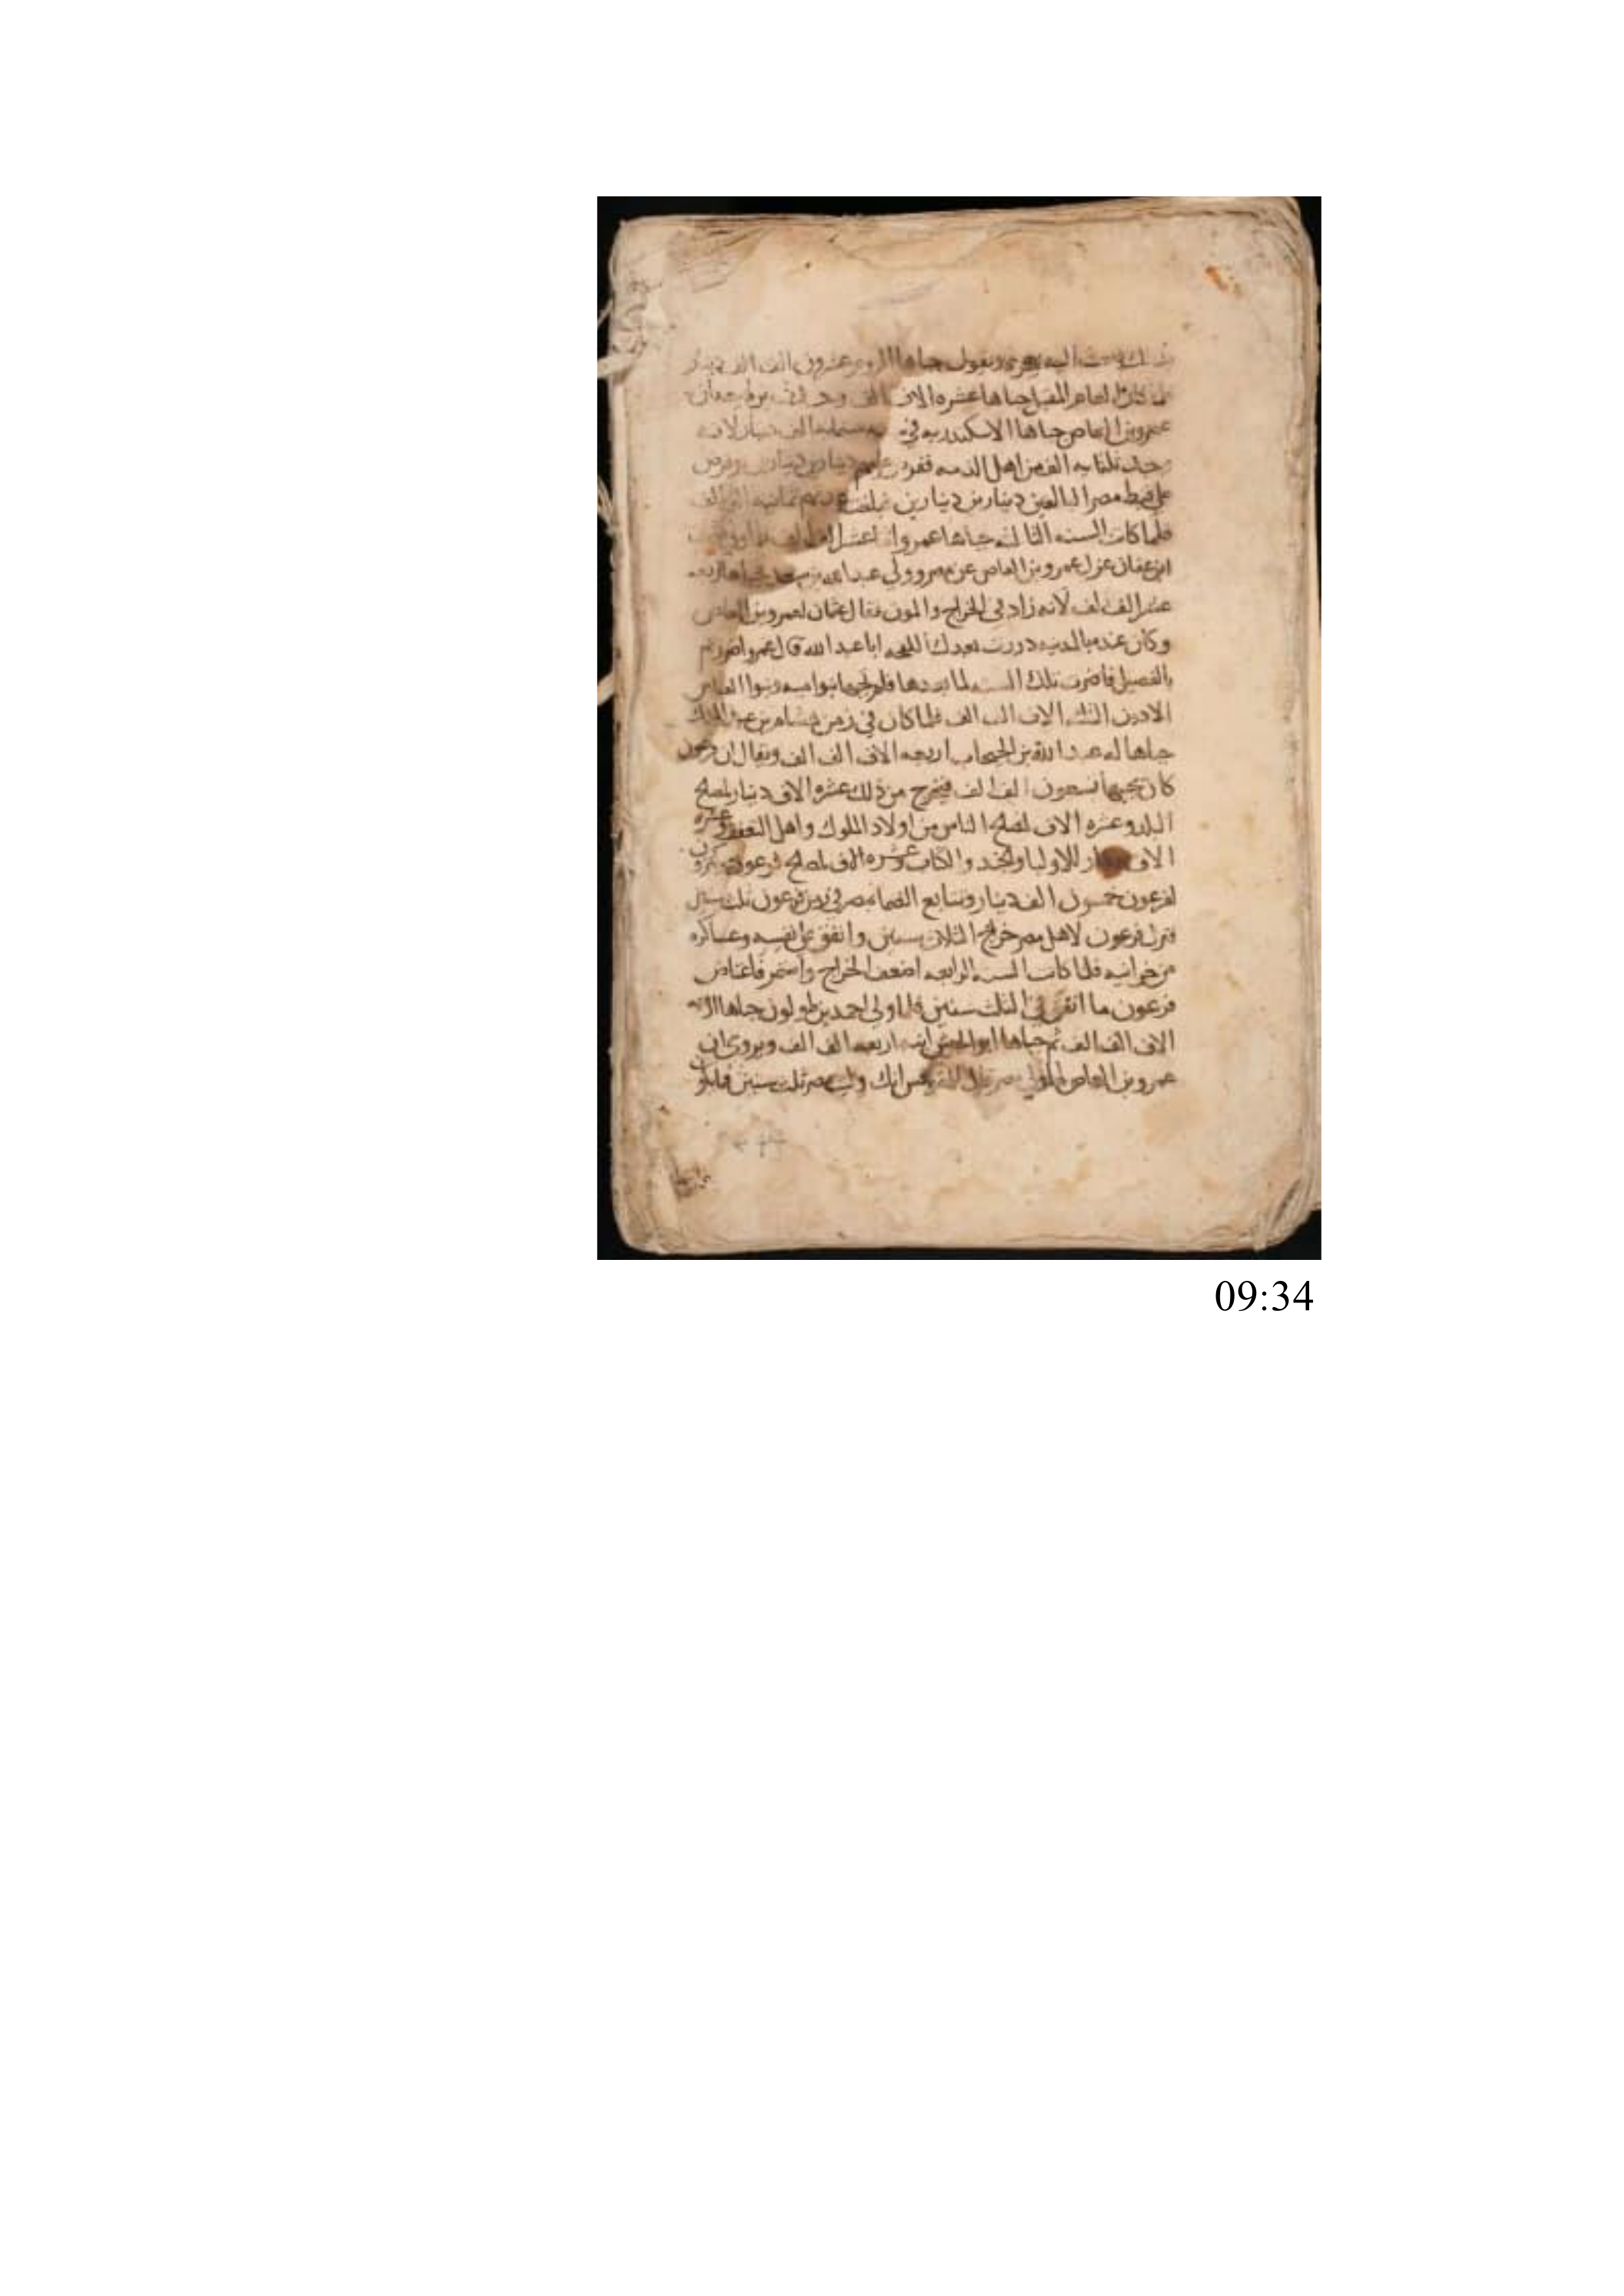 ويقول جباها الروم عشرون الف الف دينار
كان العام المقبل جباها عشره الاف الف
عمرو بن العاص جباها الاسكندريه ستمايه الف دينار لانه
وجد ثلثمايه الف من اهل الذمه ففرض عليهم دينارين دينارين وفرض
على قبط مصر البالغين دينارين دينارين فبلغت ثمانيه الف الف
فلما كانت السنه الثالثه جباها عمرو اثنا عشر الف الف
ابن عفان عزل عمرو بن العاص عن مصر وولى عبدالله بن سعد فجباها اربعه
عشر الف الف لانه زاد في الخراج والمون فقال عثمان لعمرو بن العاص
وكان عنده بالمدينه درت بعدك اللقحه ابا عبد الله قال عمرو اضررتم
بالفصيل فاضرت تلك السنه لما بعدها فلم يجبها بنوا اميه وبنوا العباس
الا دون الثلثه الاف الف الف فلما كان في زمن هشام بن عبد الملك
جباها له عبد الله بن الحبحاب اربعه الاف الف الف ويقال ان فرعون
كان يجبيها تسعون الف الف فيخرج من ذلك عشره الاف دينار لمصلح
البلد وعشره الاف لمصلح الناس من اولاد الملوك واهل التعفف وعشره
الاف دينار للاوليا والجند والكتاب وعشره الاف لمصلح فرعون
لفرعون خمسون الف دينار وتتابع الضما بمصر في زمن فرعون ثلث سنين
فترك فرعون لاهل مصر خراج الثلاث سنين وانفق على نفسه وعساكره
من خزانيه فلما كانت السنه الرابعه اضعف الخراج واستمر فاعتاض
فرعون ما انفق في الثلث سنين فلما ولى احمد بن طولون جباها اربعه
الاف الف الف ثم جباها ابو الجيش ابنه اربعه الف الف ويروى ان
عمرو بن العاص لما ولي مصر قال للمقوقس انك وليت مصر ثلث سنين
09:34